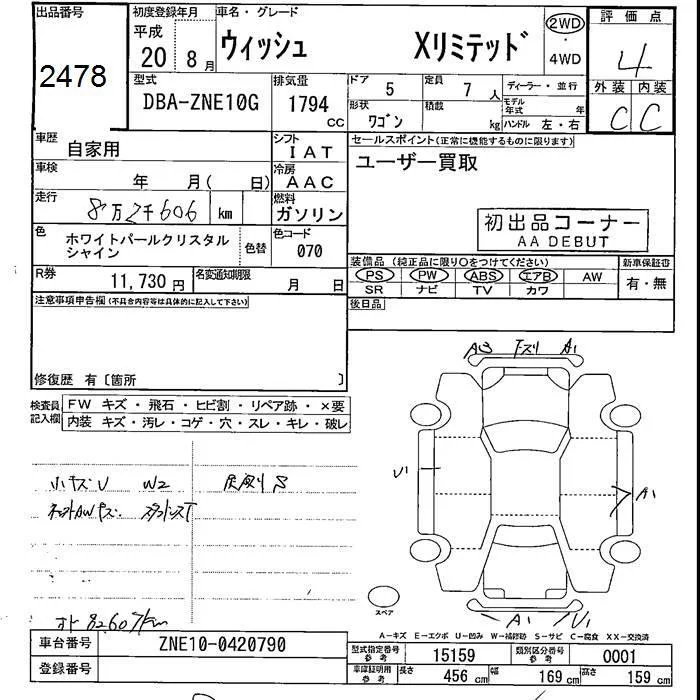 出品番号
2478
初度登録年月
平成
20年 8月
車名・グレード
ウィッシュ Xリミテッド
2WD
4WD
評価点
4
外装 内装
C C
型式
DBA-ZNE10G
排気量
1794 CC
ドア 5
定員 7人
ディーラー・並行
形状 ワゴン
積載 kg
モデル年式 年
ハンドル 左・右
車歴 自家用
シフト IAT
セールスポイント(正常に機能するものに限ります)
ユーザー買取
車検 年 月( 日)
冷房 AAC
走行 8万2千606 km
燃料 ガソリン
初出品コーナー
AA DEBUT
色 ホワイトパールクリスタルシャイン
色替
色コード 070
装備品(純正品に限り○をつけてください)
新車保証書
PS PW ABS エアB AW
有・無
SR ナビ TV カワ
R券 11,730円
名変通知期限 月 日
後日品
注意事項申告欄(不具合内容等は具体的に記入して下さい)
修復歴 有〔箇所 〕
検査員記入欄
FW キズ・飛石・ヒビ割・リペア跡・×要
内装 キズ・汚レ・コゲ・穴・スレ・キレ・破レ
A3 下ズリ A1
小キズU W2
U1
A1
スペア
A1 U1
A-キズ E-エクボ U-凹み W-補修跡 S-サビ C-腐食 XX-交換済
車台番号 ZNE10-0420790
登録番号
型式指定番号 参考 15159
類別区分番号 参考 0001
車庫証明用 参考 長さ 456 cm 幅 169 cm 高さ 159 cm